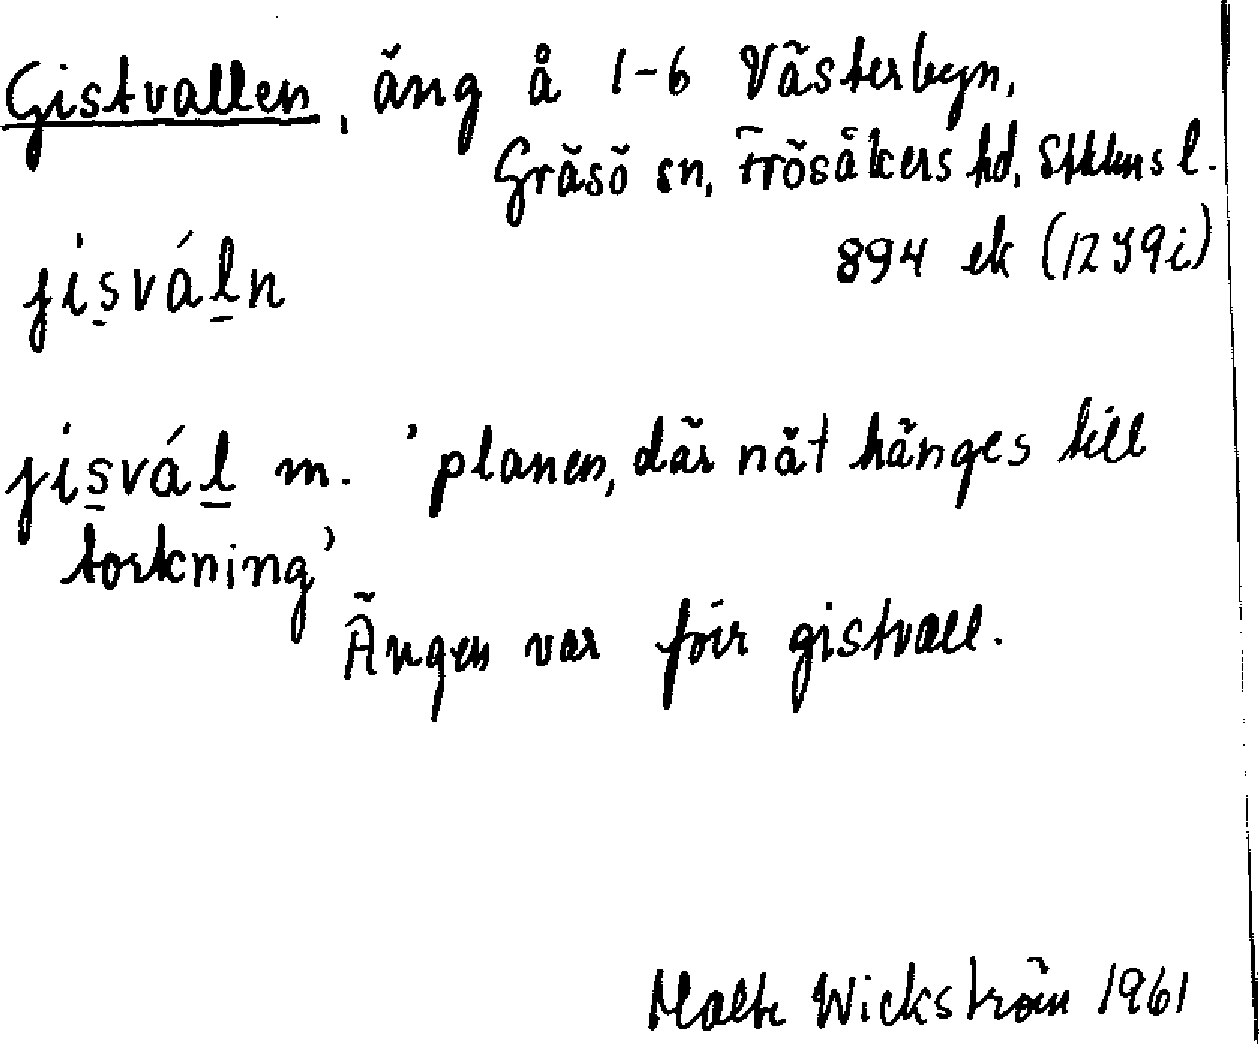 Gistvallen, äng å 1-6 Västerbyn,
Gräsö sn, Frösåkers hd, Sthlms l.
894 ek (12 I 9 i)
jis̲vál̲n
jis̲vál̲ m. 'planen, där nät hänges till
torkning'
Ängen var förr gistvall.
Malte Wickström 1961